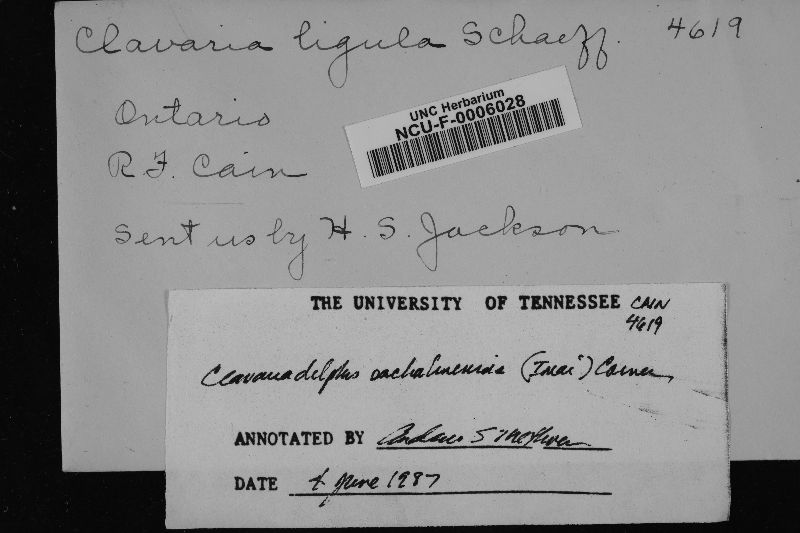 Clavaria ligula Schaeff. 4619
UNC Herbarium
NCU-F-0006028
Ontario
R. F. Cain
Sent us by H. S. Jackson
THE UNIVERSITY OF TENNESSEE CAIN
4619
Clavariadelphus sachalinensis (Imai) Corner
ANNOTATED BY Andrew S Methven
DATE 4 June 1987